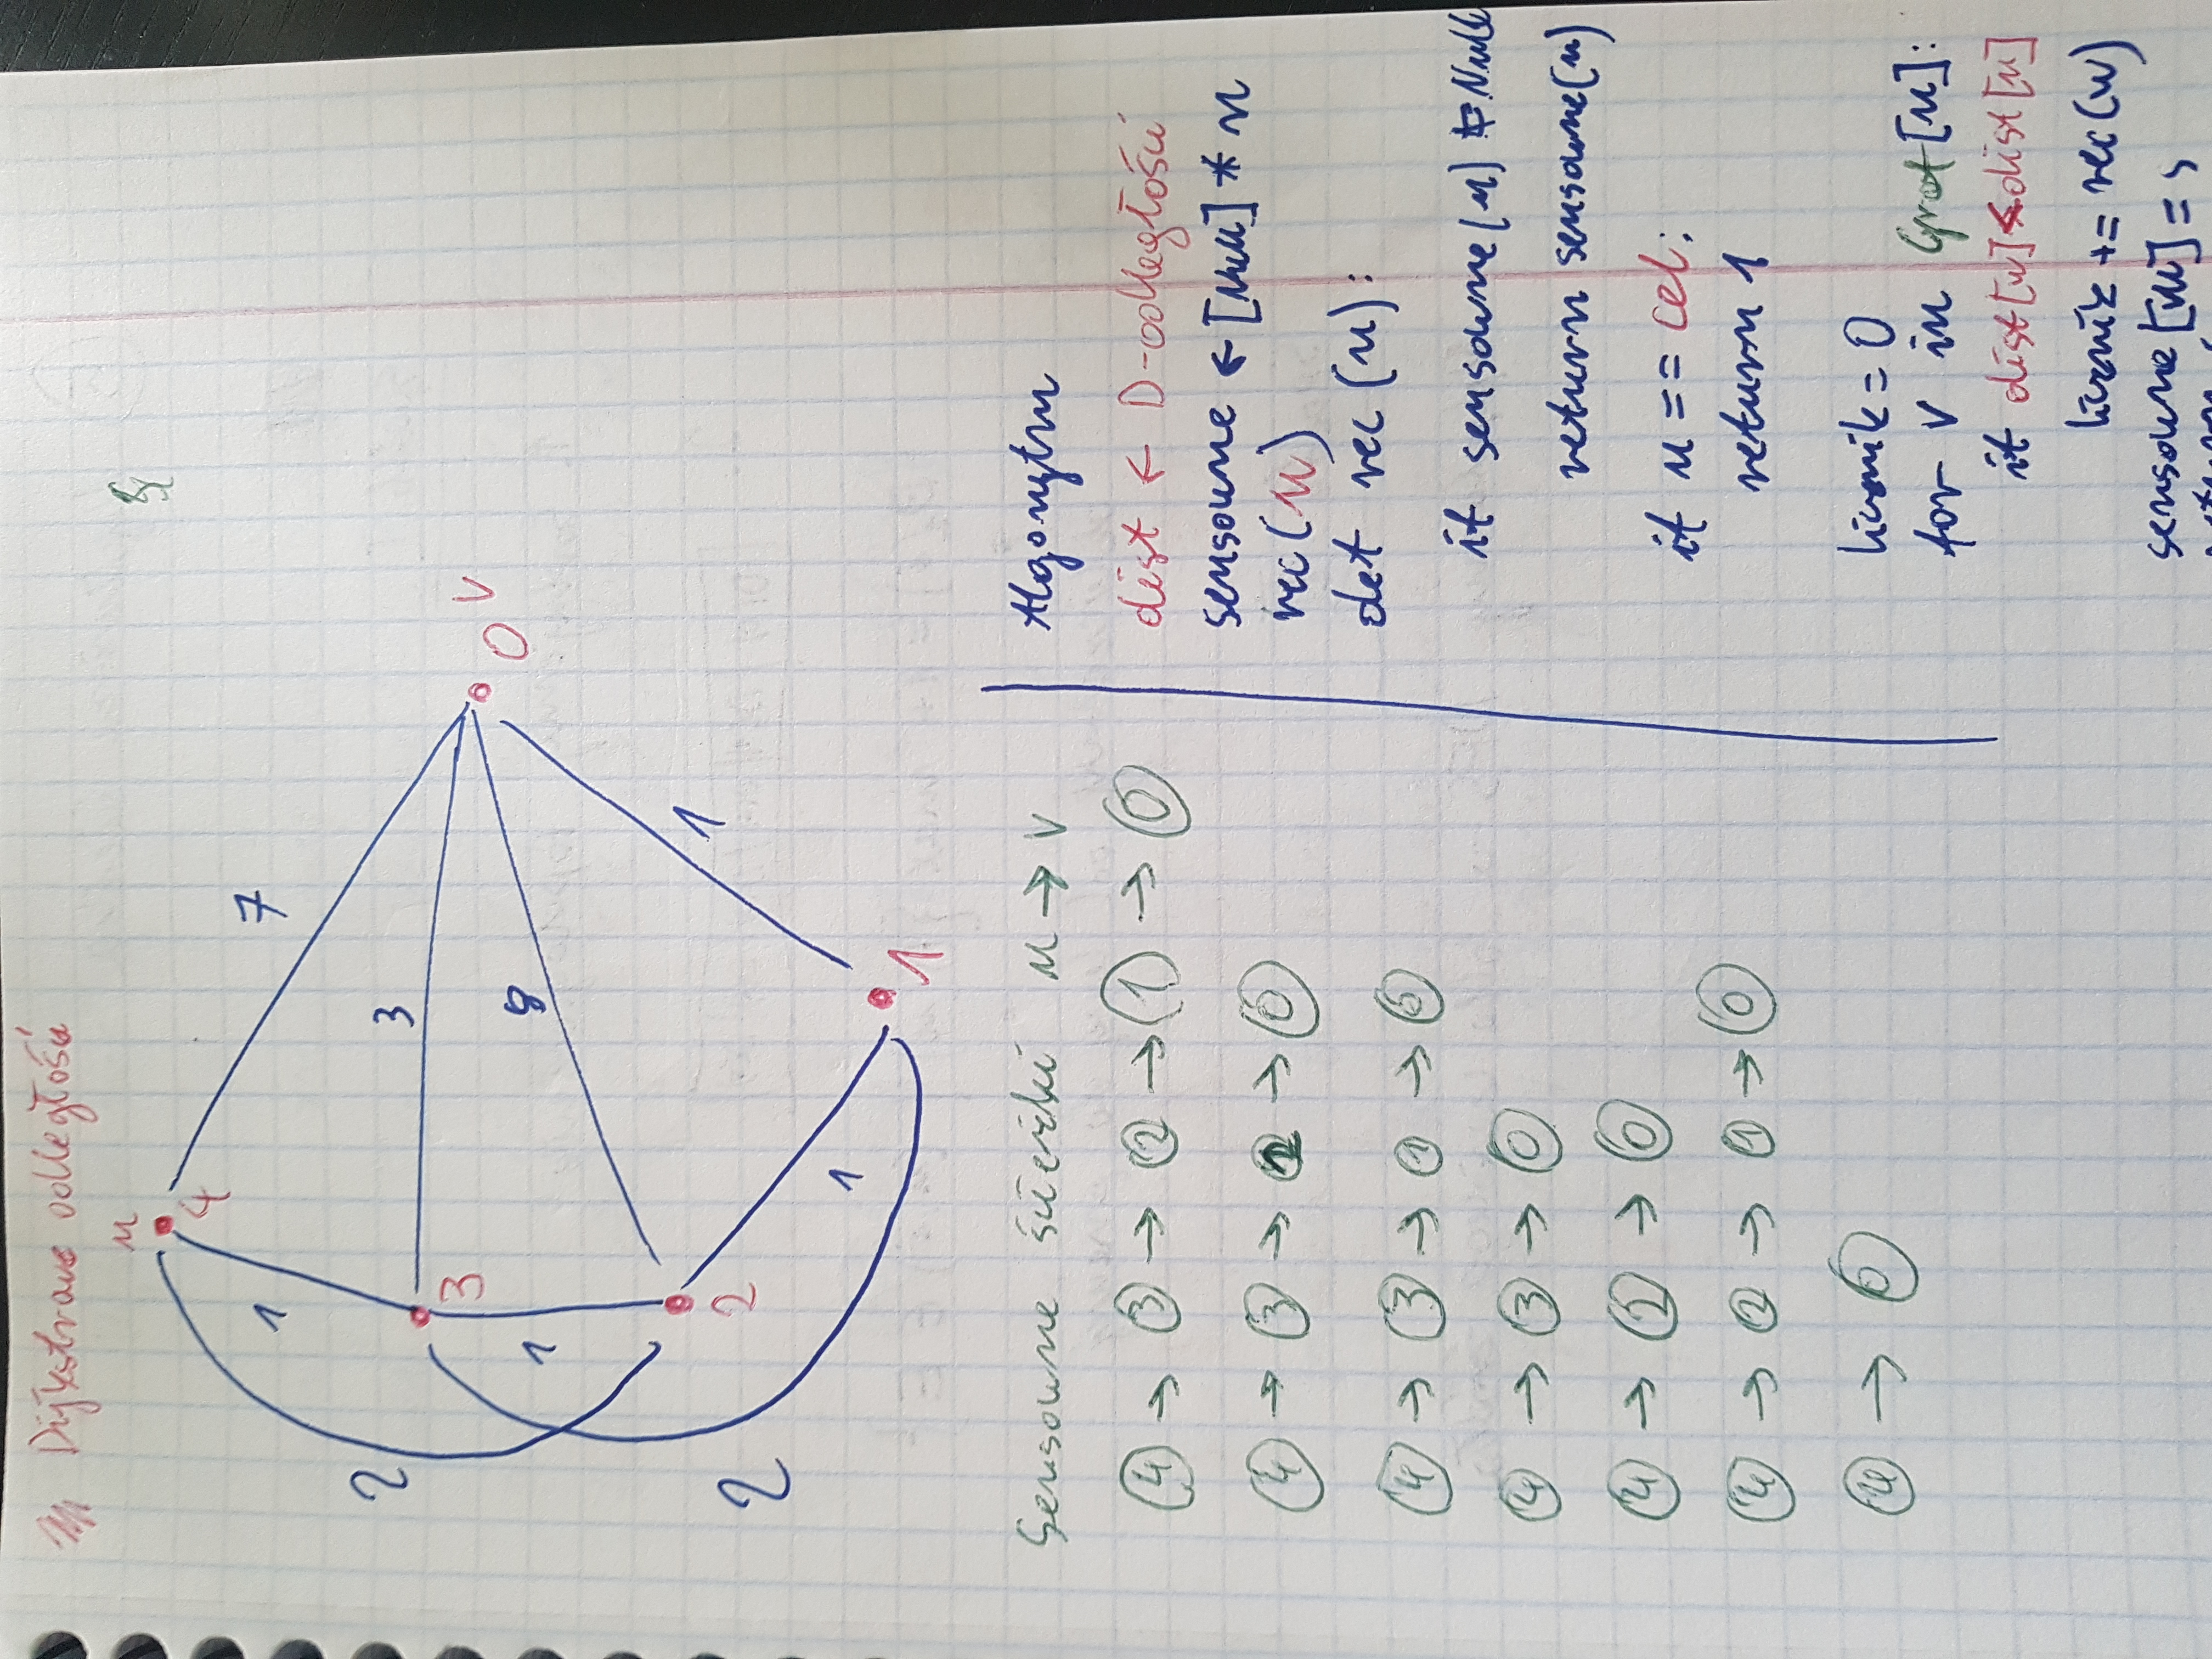 Dijkstrowe odległości
u
4
1
7
2
3
3
0 v
1
8
2
1
2
1
1
Sensowne ścieżki u → v
4 → 3 → 2 → 1 → 0
4 → 3 → 2 → 0
4 → 3 → 1 → 0
4 → 3 → 0
4 → 2 → 0
4 → 2 → 1 → 0
4 → 0
Algorytm
dist ← D-odległości
sensowne ← [Null] * n
rec(u)
def rec(u):
if sensowne(u) ≠ Null
return sensowne(u)
if u == cel:
return 1
licznik = 0
for v in Graf[u]:
if dist[w] < dist[u]
licznik += rec(w)
sensowne[u] =